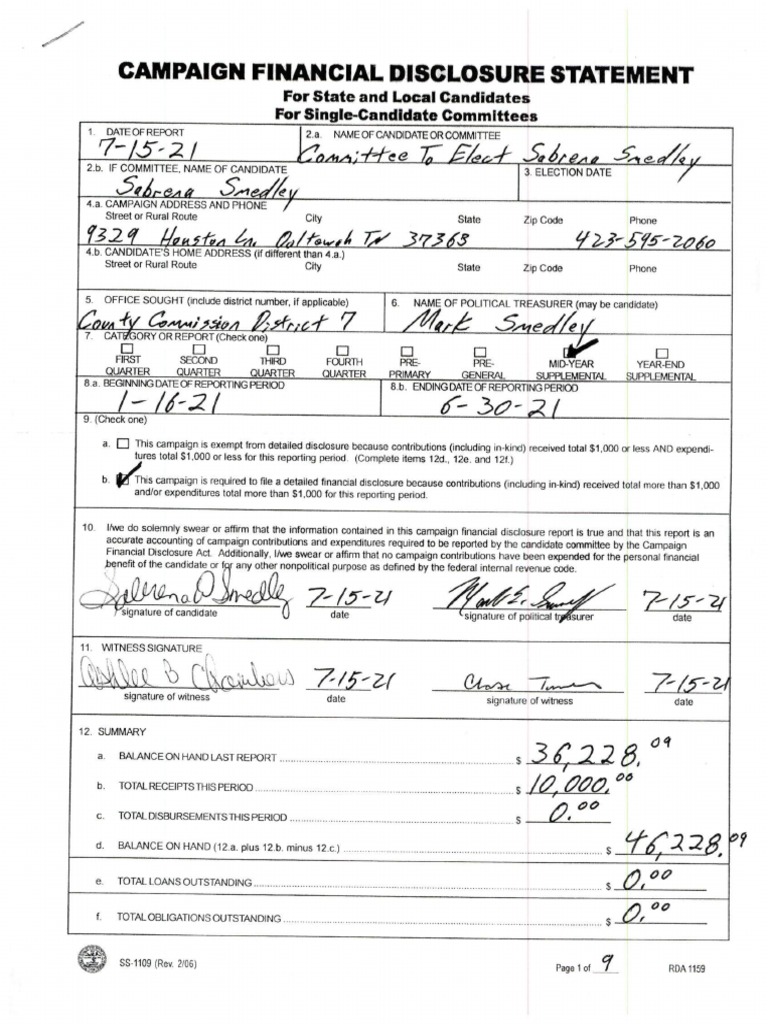 CAMPAIGN FINANCIAL DISCLOSURE STATEMENT
For State and Local Candidates
For Single-Candidate Committees
1. DATE OF REPORT 2.a. NAME OF CANDIDATE OR COMMITTEE
7-15-21 Committee To Elect Sabrena Smedley
2.b. IF COMMITTEE, NAME OF CANDIDATE 3. ELECTION DATE
Sabrena Smedley
4.a. CAMPAIGN ADDRESS AND PHONE
Street or Rural Route City State Zip Code Phone
9329 Houston Ln. Ooltewah TN 37363 423-595-2060
4.b. CANDIDATE'S HOME ADDRESS (if different than 4.a.)
Street or Rural Route City State Zip Code Phone
5. OFFICE SOUGHT (include district number, if applicable) 6. NAME OF POLITICAL TREASURER (may be candidate)
County Commission District 7 Mark Smedley
7. CATEGORY OR REPORT (Check one)
FIRST SECOND THIRD FOURTH PRE- PRE- MID-YEAR YEAR-END
QUARTER QUARTER QUARTER QUARTER PRIMARY GENERAL SUPPLEMENTAL SUPPLEMENTAL
8.a. BEGINNING DATE OF REPORTING PERIOD 8.b. ENDING DATE OF REPORTING PERIOD
1-16-21 6-30-21
9. (Check one)
a. This campaign is exempt from detailed disclosure because contributions (including in-kind) received total $1,000 or less AND expendi-
tures total $1,000 or less for this reporting period. (Complete items 12d., 12e. and 12f.)
b. This campaign is required to file a detailed financial disclosure because contributions (including in-kind) received total more than $1,000
and/or expenditures total more than $1,000 for this reporting period.
10. I/we do solemnly swear or affirm that the information contained in this campaign financial disclosure report is true and that this report is an
accurate accounting of campaign contributions and expenditures required to be reported by the candidate committee by the Campaign
Financial Disclosure Act. Additionally, I/we swear or affirm that no campaign contributions have been expended for the personal financial
benefit of the candidate or for any other nonpolitical purpose as defined by the federal internal revenue code.
Sabrena D Smedley 7-15-21 7-15-21
signature of candidate date signature of political treasurer date
11. WITNESS SIGNATURE
Ashlee B Chambers 7-15-21 Chase 7-15-21
signature of witness date signature of witness date
12. SUMMARY
a. BALANCE ON HAND LAST REPORT $ 36,228.09
b. TOTAL RECEIPTS THIS PERIOD $ 10,000.00
c. TOTAL DISBURSEMENTS THIS PERIOD $ 0.00
d. BALANCE ON HAND (12.a. plus 12.b. minus 12.c.) $ 46,228.09
e. TOTAL LOANS OUTSTANDING $ 0.00
f. TOTAL OBLIGATIONS OUTSTANDING $ 0.00
SS-1109 (Rev. 2/06) Page 1 of 9 RDA 1159